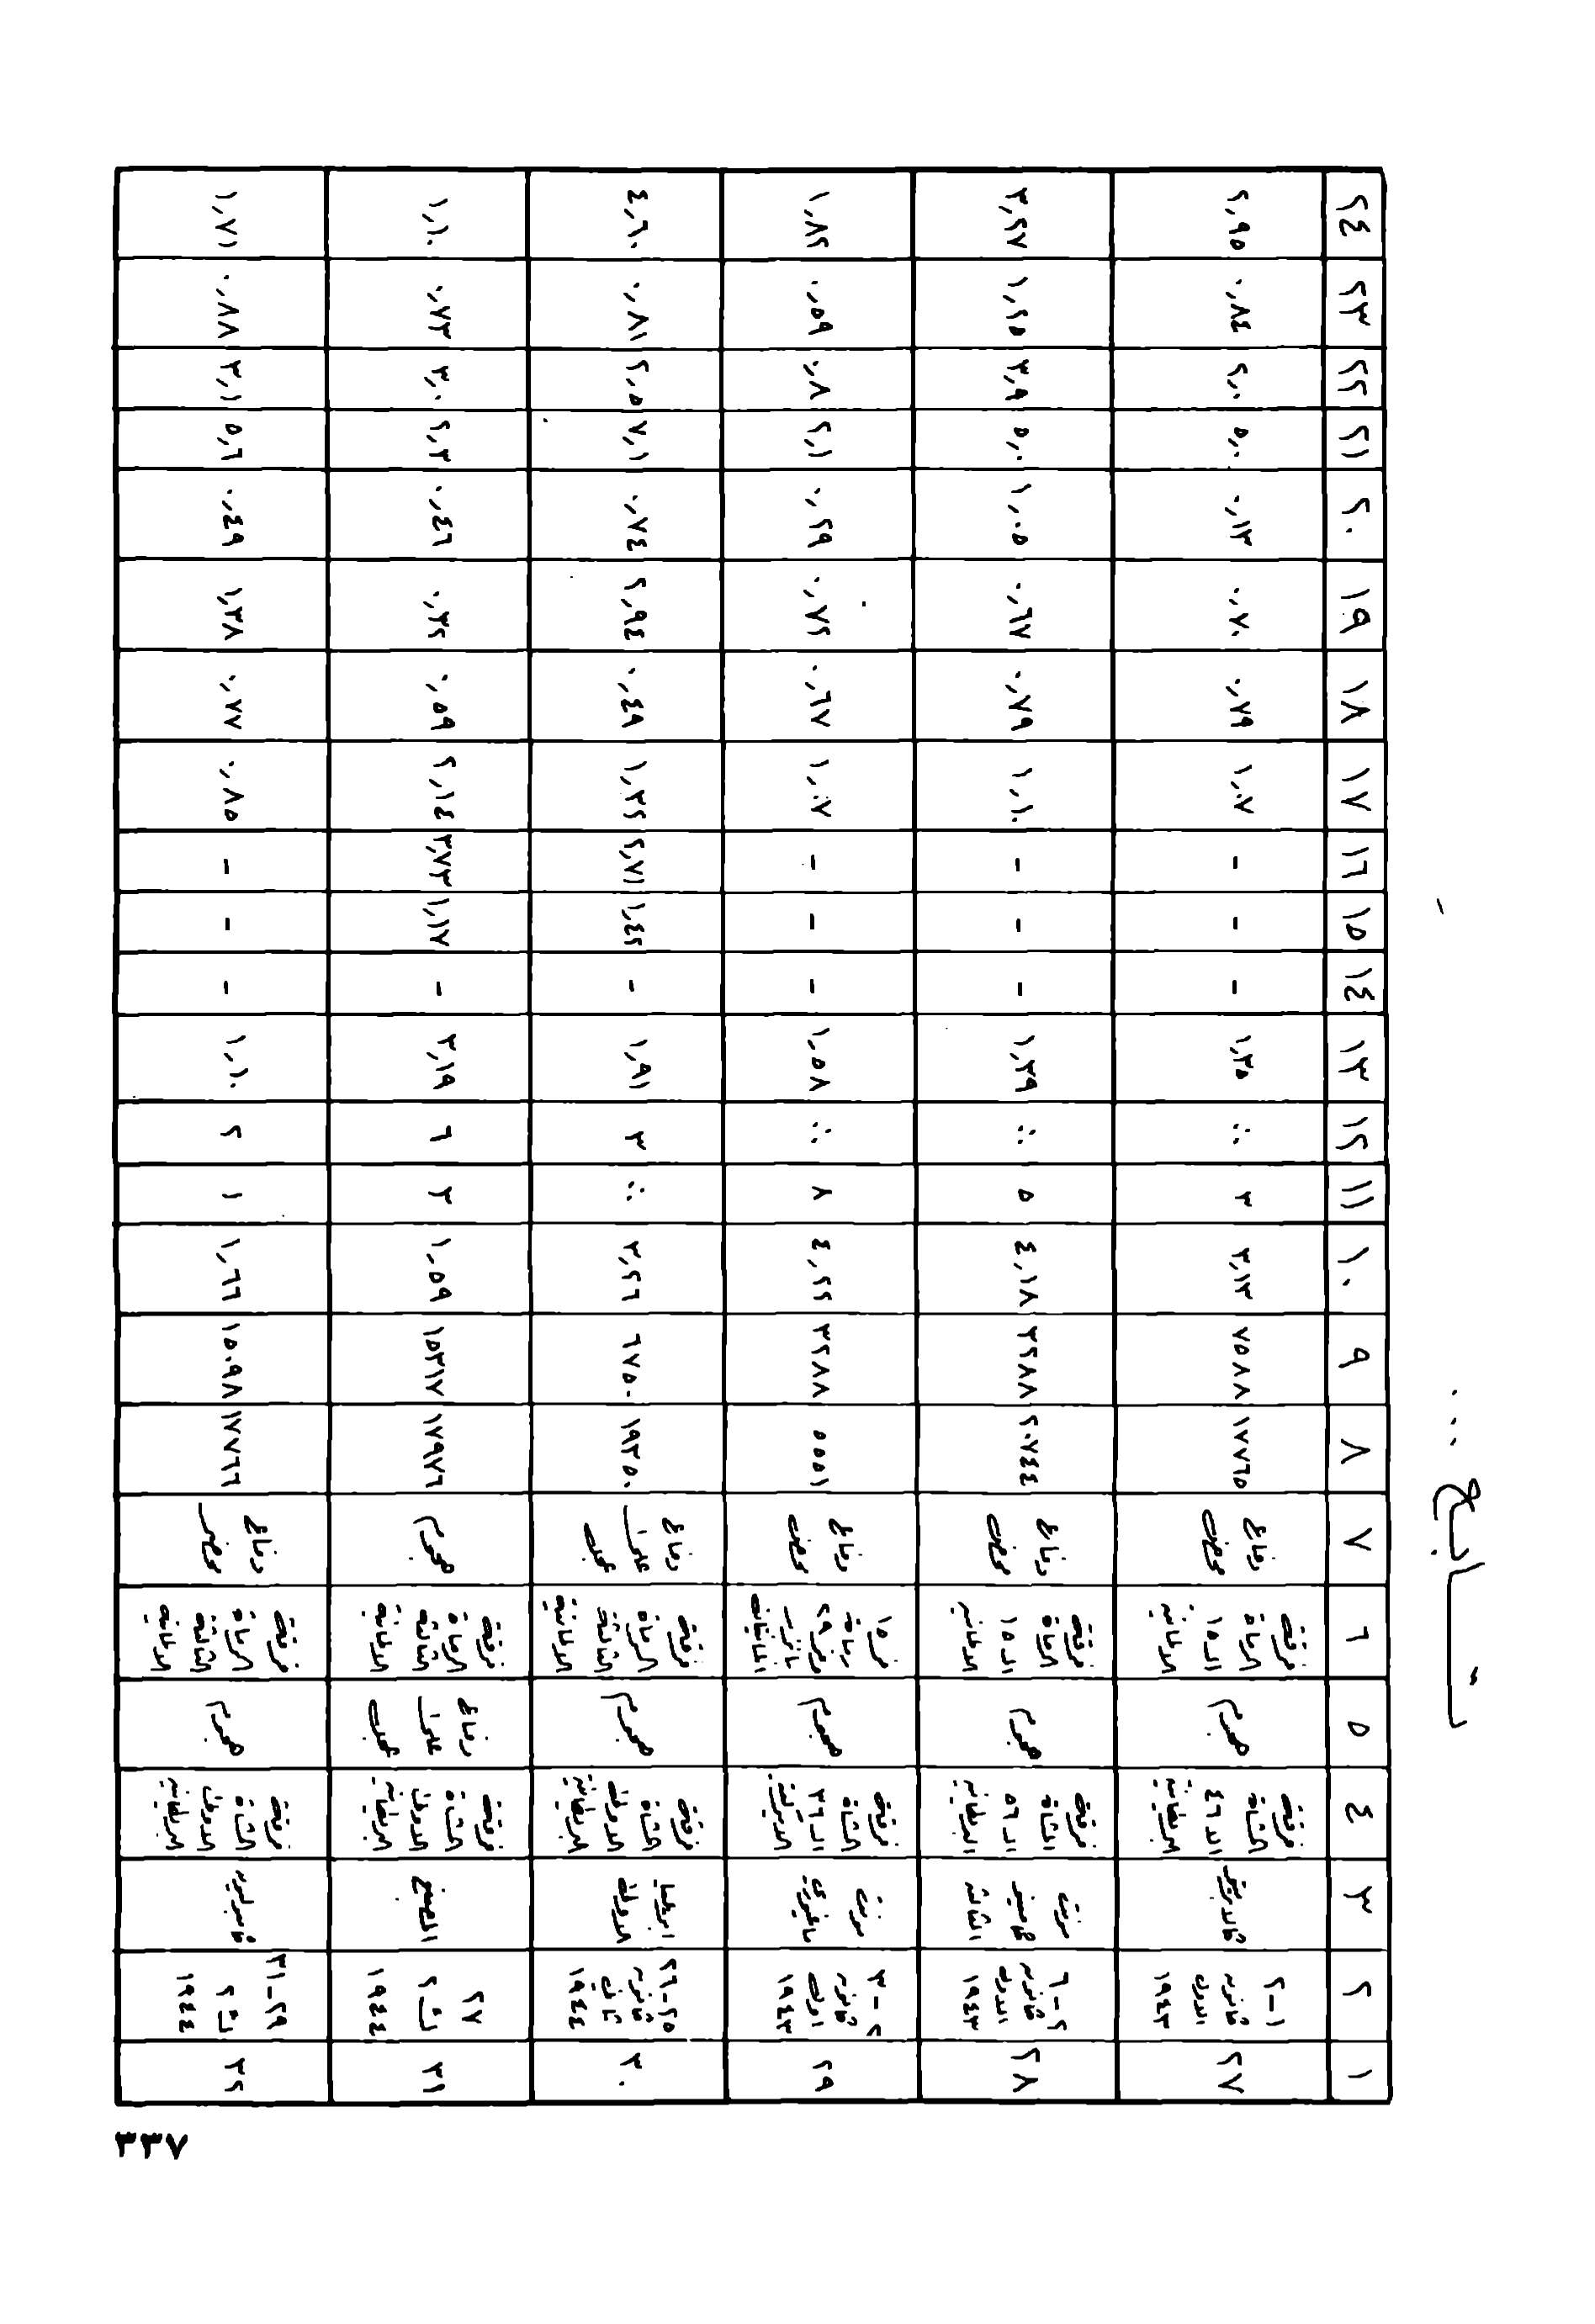 تابع ...
١ ٢ ٣ ٤ ٥ ٦ ٧ ٨ ٩ ١٠ ١١ ١٢ ١٣ ١٤ ١٥ ١٦ ١٧ ١٨ ١٩ ٢٠ ٢١ ٢٢ ٢٣ ٢٤
٢٧ ١-٢ كانون الاول ١٩٤٣ كالابريتو فرقة المشاة الـ ٤٦ البريطانية هجوم فرقة الرماة الـ ١٥ الالمانية دفاع موضعي ١٧٧٦٥ ٧٥٨٨ ٣,١٣ ٣ ∴ ١,٣٥ - - - ١,٠٧ ٠,٧٩ ٠,٧٠ ٠,١٣ ٥,٠ ٢,٠ ٠,٨٤ ٢,٩٥
٢٨ ٢-٦ كانون الاول ١٩٤٣ مونت كامينو الثالثة فرقة المشاة الـ ٥٦ البريطانية هجوم فرقة الرماة الـ ١٥ الالمانية دفاع موضعي ٢٠٧٤٤ ٣٢٨٨ ٤,١٨ ٥ ∴ ١,٣٩ - - - ١,١٠ ٠,٧٩ ٠,٦٧ ١,٠٥ ٥,٠ ٣,٩ ١,٢٥ ٣,٢٧
٢٩ ٢-٣ كانون اول ١٩٤٣ مونت ماغيوري فرقة المشاة الـ ٣٦ الامريكية هجوم ف ١٥ رماة وف ٢٩ بانزر المانيتان دفاع موضعي ٥٥٥١ ٣٢٨٨ ٤,٢٢ ٨ ∴ ١,٥٨ - - - ١,٠٧ ٠,٦٧ ٠,٧٢ ٠,٢٩ ٢,١ ٠,٨ ٠,٥٩ ١,٨٢
٣٠ ٢٥-٢٦ كانون ثاني ١٩٤٤ ابريليا الاولى فرقة المشاة الاولى البريطانية هجوم فرقة الرماة الثالثة الالمانية دفاع على عجل ١٩٣٥٠ ٦٧٥٠ ٣,٢٦ ∴ ٣ ١,٩١ - ١,٤٢ ٢,٧١ ١,٣٢ ٠,٤٩ ٢,٩٤ ٠,٧٤ ٧,١ ٢,٥ ٠,٨١ ٤,٦٠
٣١ ٢٧ ك ٢ ١٩٤٤ المصنع فرقة المشاة الاولى البريطانية دفاع على عجل فرقة الرماة الثالثة الالمانية هجوم ١٧٩٧٦ ١٥٣١٧ ١,٥٩ ٣ ٦ ٣,١٩ - ١,١٧ ٣,٧٣ ٢,١٤ ٠,٥٩ ٠,٣٢ ٠,٤٦ ٢,٣ ٣,٠ ٠,٧٣ ١,١٠
٣٢ ٢٩-٣١ ك ٢ ١٩٤٤ فرقة المشاة الاولى البريطانية هجوم فرقة الرماة الثالثة الالمانية دفاع موضعي ١٧٧٦٦ ١٥٠٩٨ ١,٦٦ ١ ٢ ١,١٠ - - - ٠,٨٥ ٠,٧٧ ١,٣٨ ٠,٤٩ ٥,٦ ٣,١ ٠,٨٨ ١,٧١
٣٣٧